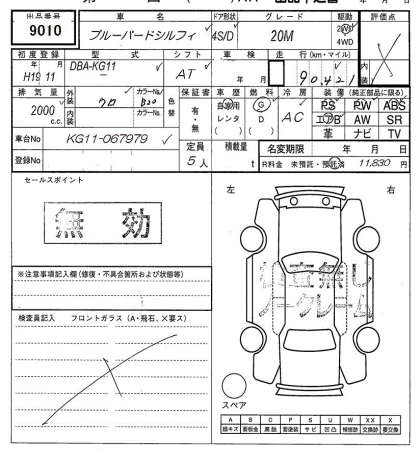 出品番号 車名 ドア形状 グレード 駆動 評価点
9010 ブルーバードシルフィ 4S/D 20M 2WD 4WD
初度登録 型式 シフト 車検 走行(km・マイル) 内装
H19年11月 DBA-KG11 AT 年 月 90,421
排気量 外装 カラーNo. 色替 保証書 車歴 燃料 冷房 装備(純正部品に限る)
2000c.c. クロ B20 有・無 自家用 G AC PS PW ABS
内装 カラーNo. レンタ D エアB AW SR
( ) ( ) 革 ナビ TV
車台No KG11-067979 定員 積載量 名変期限 年 月 日
登録No 5人 t R料金 未預託・預託済 11,830円
セールスポイント 左 右
無効
車直無し
ノークレーム
※注意事項記入欄(修復・不具合箇所および状態等)
検査員記入 フロントガラス(A・飛石、X要ス)
スペア
A B C P S U W X XX
線キズ 要板金 腐蝕 要塗装 サビ 凹凸 補修跡 交換跡 要交換